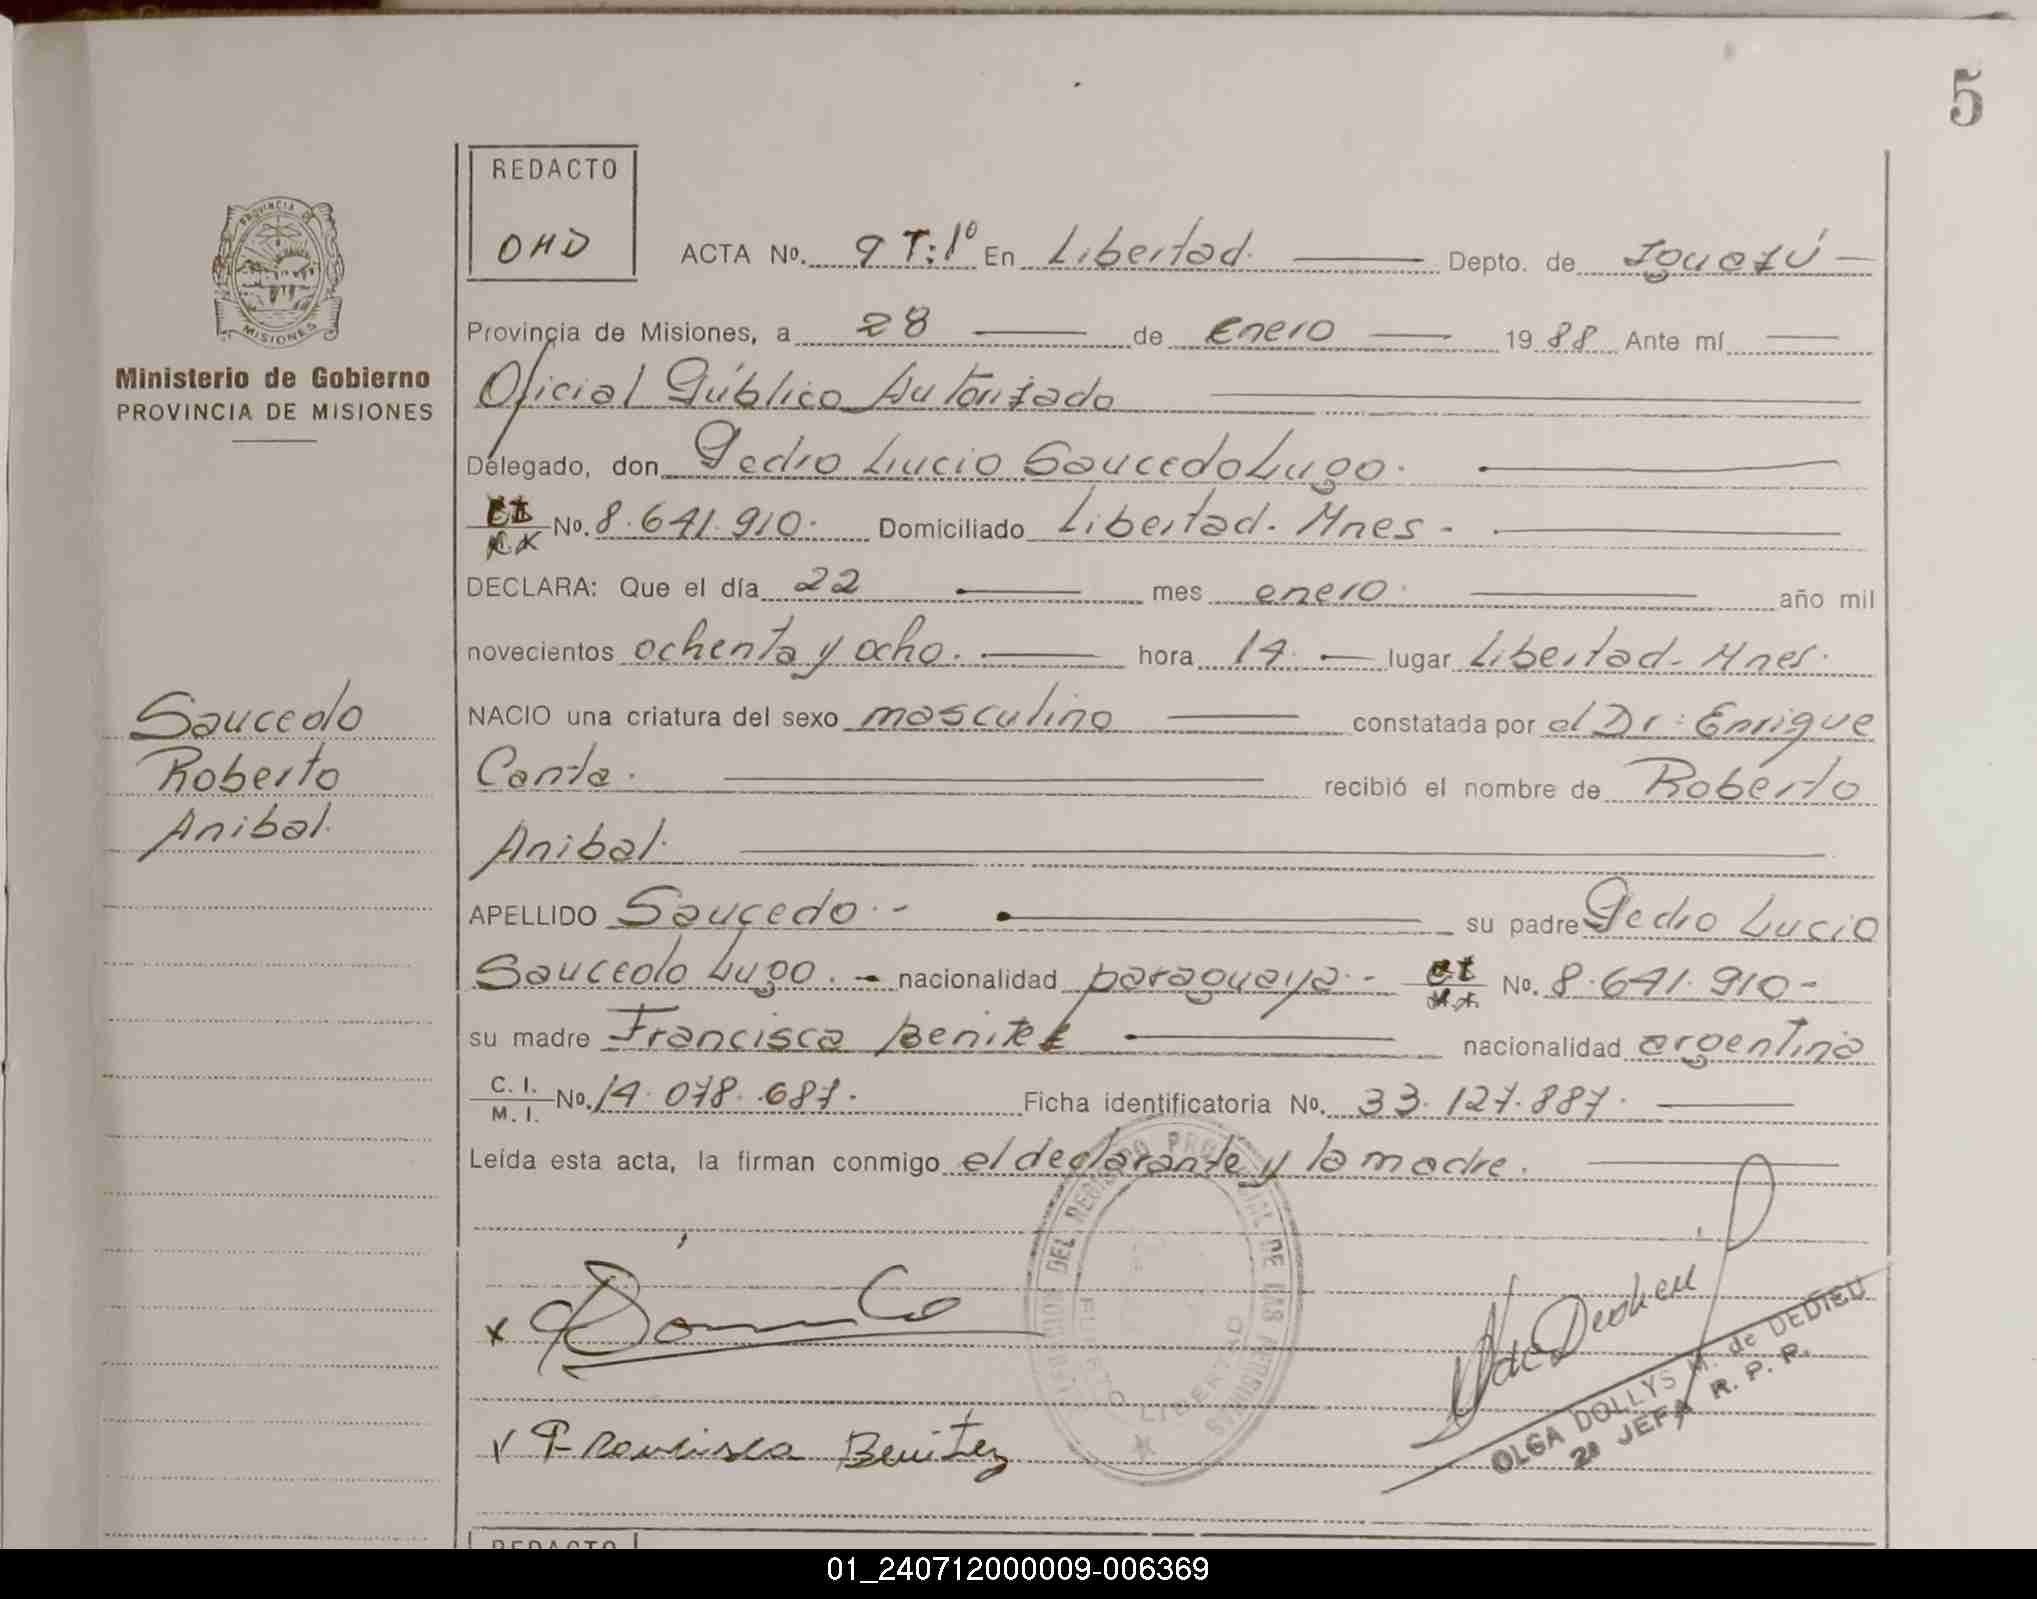 5
REDACTO
OHD
ACTA No. 9 T:1º En Libertad. Depto. de Iguazú
Provincia de Misiones, a 28 de Enero 1988 Ante mí
Oficial Público Autorizado
Délegado, don Pedro Lucio Saucedo Lugo.
CI No. 8.641.910. Domiciliado Libertad. Mnes.
DECLARA: Que el día 22 mes enero. año mil
novecientos ochenta y ocho. hora 14. lugar Libertad. Mnes.
NACIO una criatura del sexo masculino constatada por el Dr: Enrique
Canta. recibió el nombre de Roberto
Anibal.
APELLIDO Saucedo.- su padre Pedro Lucio
Saucedo Lugo. nacionalidad paraguaya.- CI No. 8.641.910-
su madre Francisca Benitez nacionalidad argentina
C. I.
M. I. No. 14.078.687. Ficha identificatoria No. 33.127.887.
Leída esta acta, la firman conmigo el declarante y la madre.
x
Francisca Benitez
DEL REGISTRO PROVINCIAL DE LAS PERSONAS
LIBERTAD
OLGA DOLLYS M. de DEDIEU
2ª JEFA R. P. P.
PROVINCIA DE
MISIONES
Ministerio de Gobierno
PROVINCIA DE MISIONES
Saucedo
Roberto
Anibal.
REDACTO
01_240712000009-006369